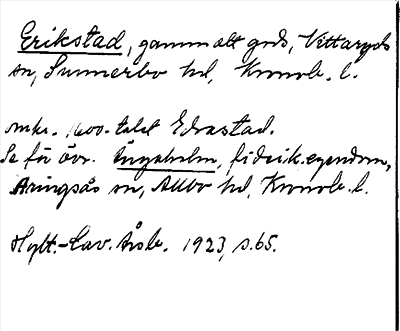 Erikstad, gammalt gods, Vittaryds
sn, Sunnerbo hd, Kronob. l.
omkr. 1600-talet Edrastad.
Se för övr. Engaholm, fideik.egendom,
Aringsås sn, Allbo hd, Kronob. l.
Hylt.-Cav. Årsb. 1923, s.65.